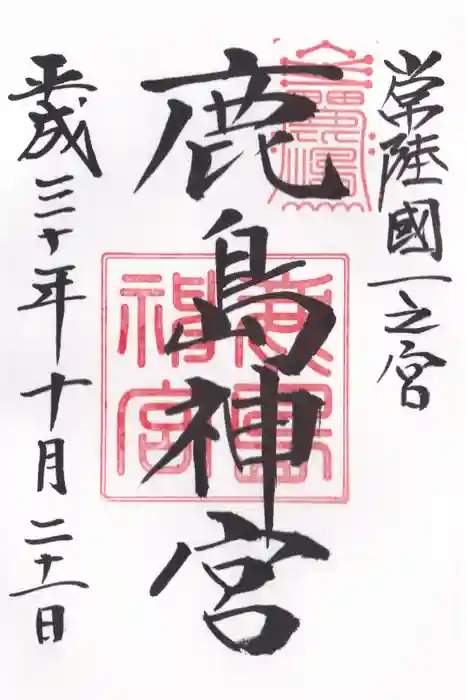 常陸國一之宮
鹿島神宮
平成三十年十月二十一日
鹿島神宮